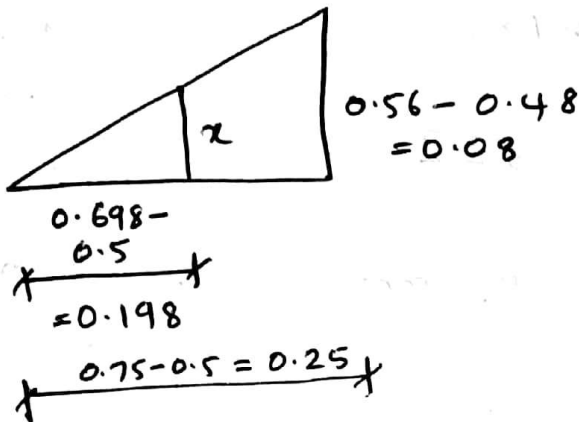 0.56 - 0.48
= 0.08
x
0.698 -
0.5
= 0.198
0.75 - 0.5 = 0.25